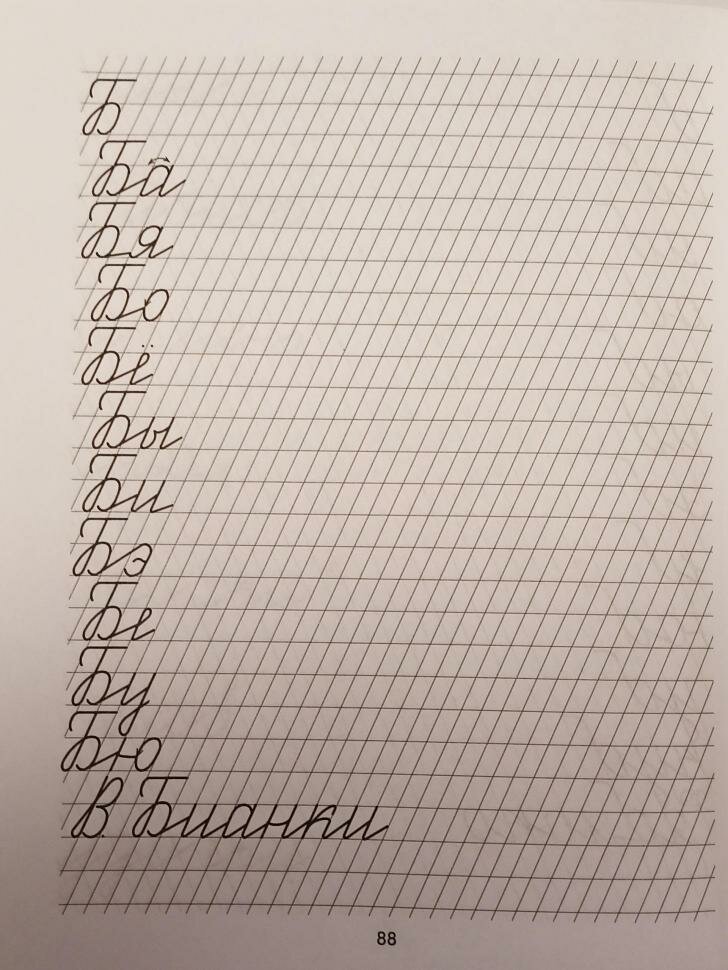 Б
Ба
Бя
Бо
Бё
Бы
Би
Бэ
Бе
Бу
Бю
В. Бианки
88